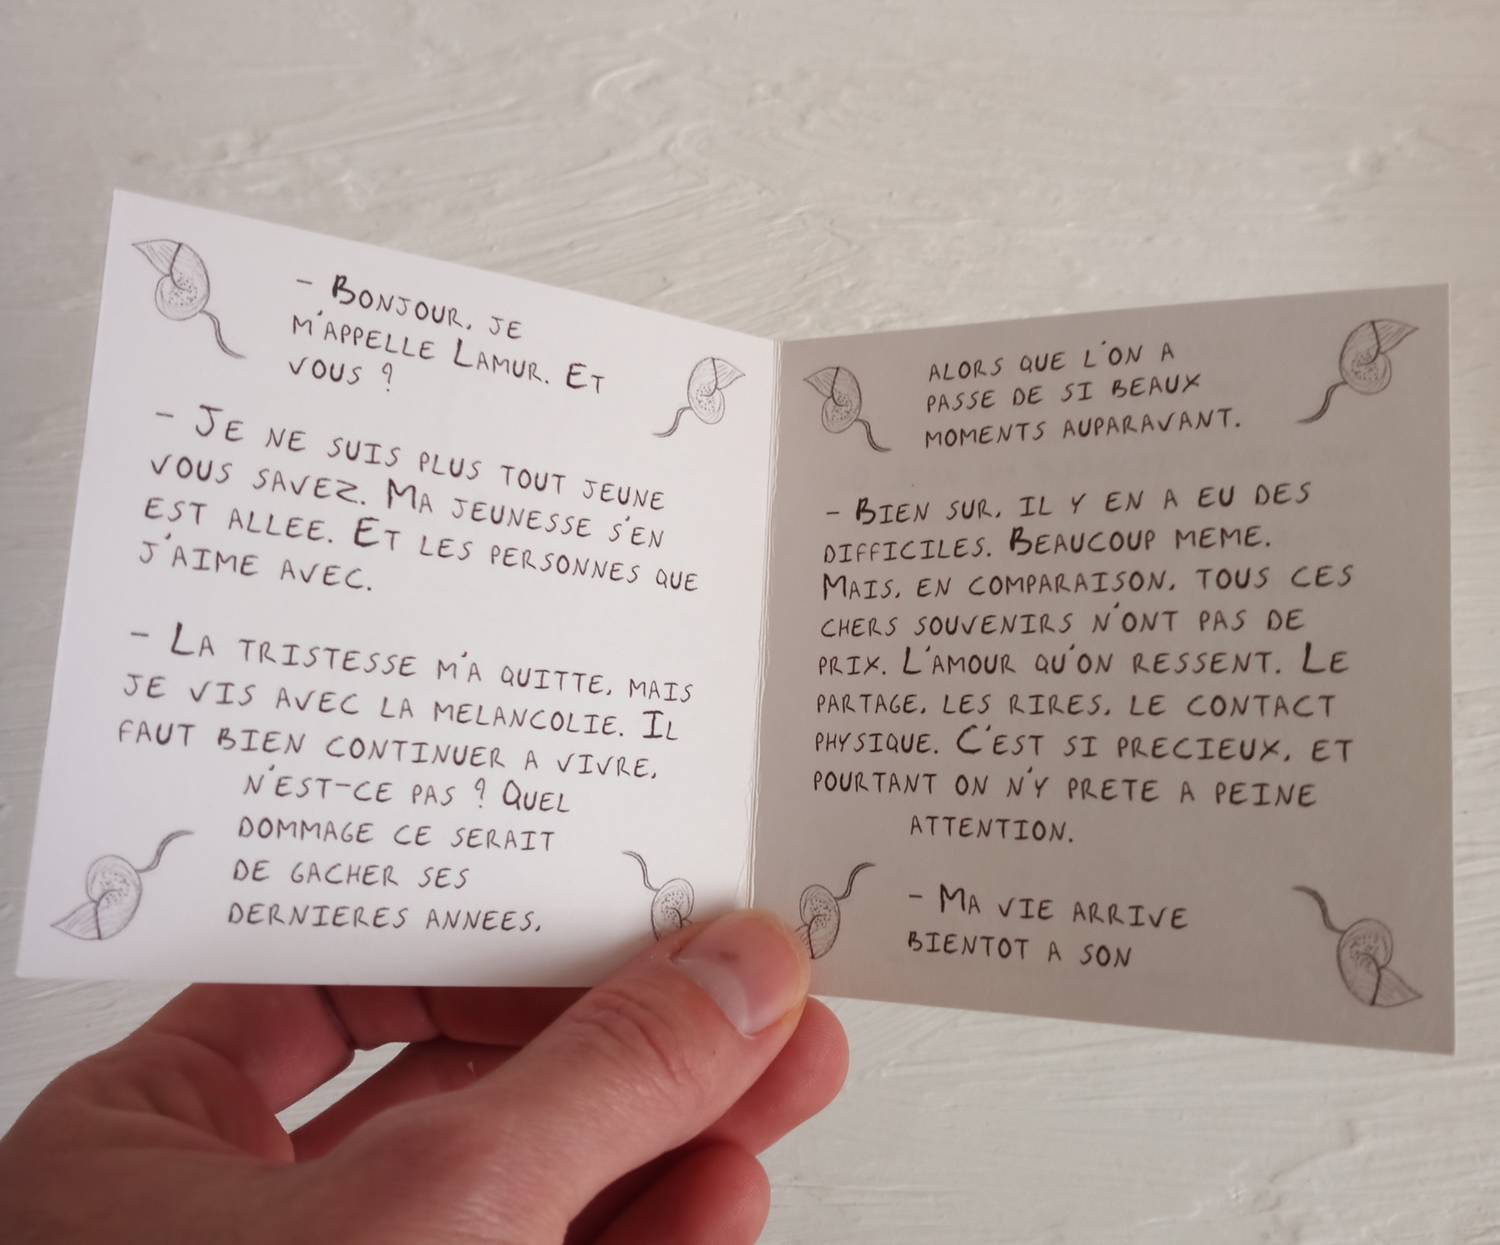 - BONJOUR, JE
M'APPELLE LAMUR. ET
VOUS ?
- JE NE SUIS PLUS TOUT JEUNE
VOUS SAVEZ. MA JEUNESSE S'EN
EST ALLEE. ET LES PERSONNES QUE
J'AIME AVEC.
- LA TRISTESSE M'A QUITTE, MAIS
JE VIS AVEC LA MELANCOLIE. IL
FAUT BIEN CONTINUER A VIVRE,
N'EST-CE PAS ? QUEL
DOMMAGE CE SERAIT
DE GACHER SES
DERNIERES ANNEES,
ALORS QUE L'ON A
PASSE DE SI BEAUX
MOMENTS AUPARAVANT.
- BIEN SUR, IL Y EN A EU DES
DIFFICILES. BEAUCOUP MEME.
MAIS, EN COMPARAISON, TOUS CES
CHERS SOUVENIRS N'ONT PAS DE
PRIX. L'AMOUR QU'ON RESSENT. LE
PARTAGE, LES RIRES, LE CONTACT
PHYSIQUE. C'EST SI PRECIEUX, ET
POURTANT ON N'Y PRETE A PEINE
ATTENTION.
- MA VIE ARRIVE
BIENTOT A SON